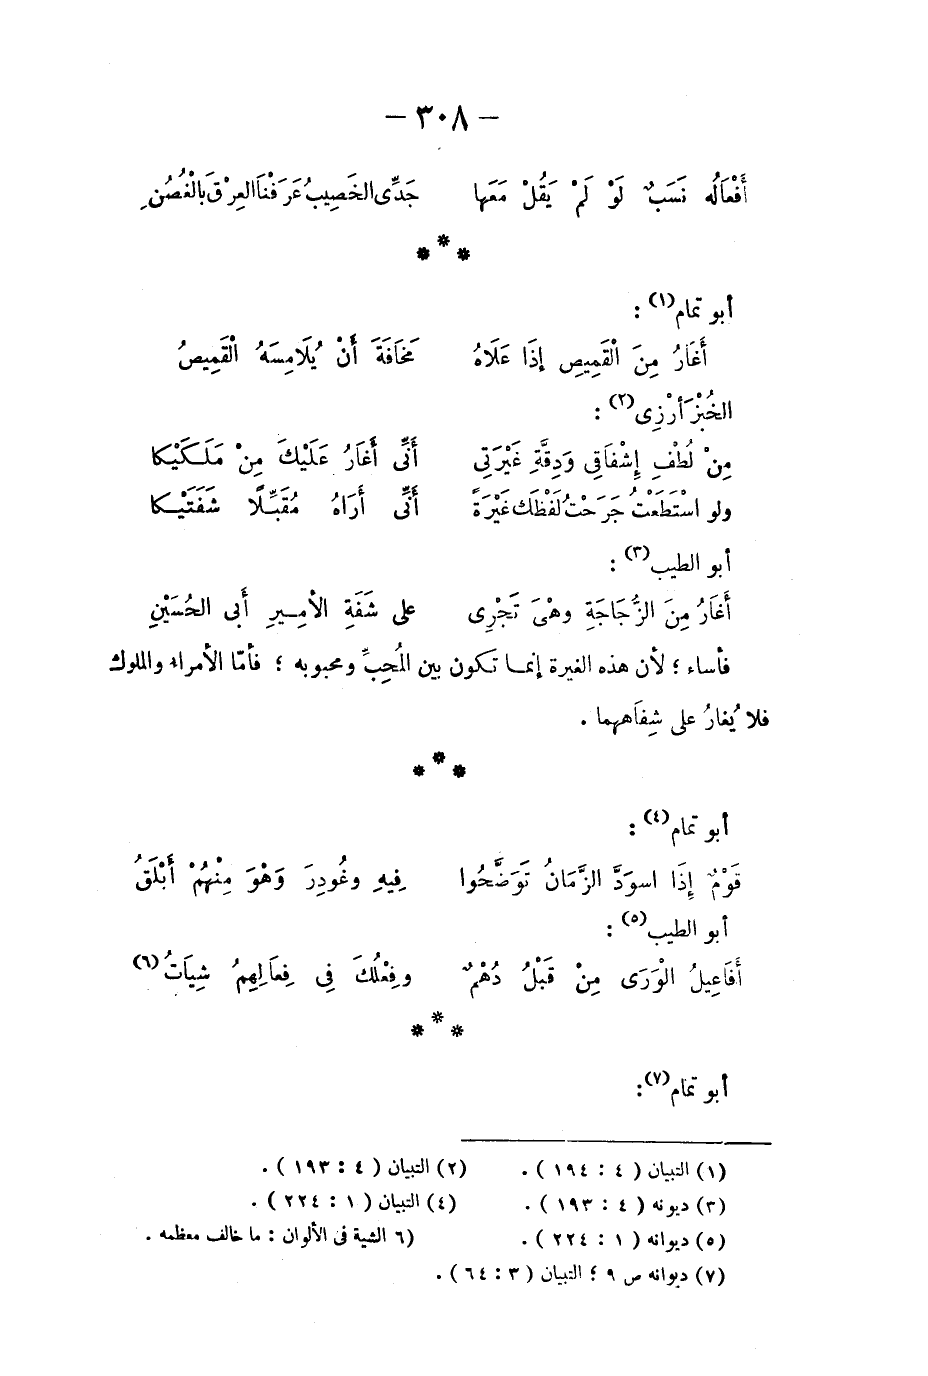 — ٣٠٨ —
أَفْعَالُه نَسَبٌ لَوْ لَمْ يَقُلْ مَعَها جَدِّى الخَصِيبُ عَرَفْنَا العِرْقَ بِالْغُصُنِ
* * *
أبو تمام (١) :
أَغَارُ مِنَ الْقَمِيصِ إذَا عَلَاهُ مَخَافَةَ أَنْ يُلَامِسَهُ الْقَمِيصُ
الخُبْزَأرْزِى (٢) :
مِنْ لُطْفِ إشْفَاقِى وَدِقَّةِ غَيْرَتِى أَنِّى أَغَارُ عَلَيْكَ مِنْ مَلَكَيْكا
ولو اسْتَطَعْتُ جَرَحْتُ لَفْظَكَ غَيْرَةً أَنِّى أَرَاهُ مُقَبِّلًا شَفَتَيْكا
أبو الطيب (٣) :
أَغَارُ مِنَ الزُّجَاجَةِ وهْىَ تَجْرِى على شَفَةِ الأمِيرِ أَبى الحُسَيْنِ
فأساء ؛ لأن هذه الغيرة إنما تكون بين المُحِبِّ ومحبوبه ؛ فأمّا الأمراء والملوك
فلا يُغارُ على شِفَاههما .
* * *
أبو تمام (٤) :
قَوْمٌ إِذَا اسودَّ الزَّمَانُ تَوَضَّحُوا فِيهِ وغُودِرَ وَهْوَ مِنْهُمْ أَبْلَقُ
أبو الطيب (٥) :
أَفَاعِيلُ الْوَرَى مِنْ قَبْلُ دُهْمٌ وفِعْلُكَ فِى فِعَالِهِمُ شِيَاتُ (٦)
* * *
أبو تمام (٧) :
(١) التبيان ( ٤ : ١٩٤ ) . (٢) التبيان ( ٤ : ١٩٣ ) .
(٣) ديونه ( ٤ : ١٩٣ ) . (٤) التبيان ( ١ : ٢٢٤ ) .
(٥) ديوانه ( ١ : ٢٢٤ ) . (٦ الشية فى الألوان : ما خالف معظمه .
(٧) ديوانه ص ٩ ؛ التبيان ( ٣ : ٦٤ ) .